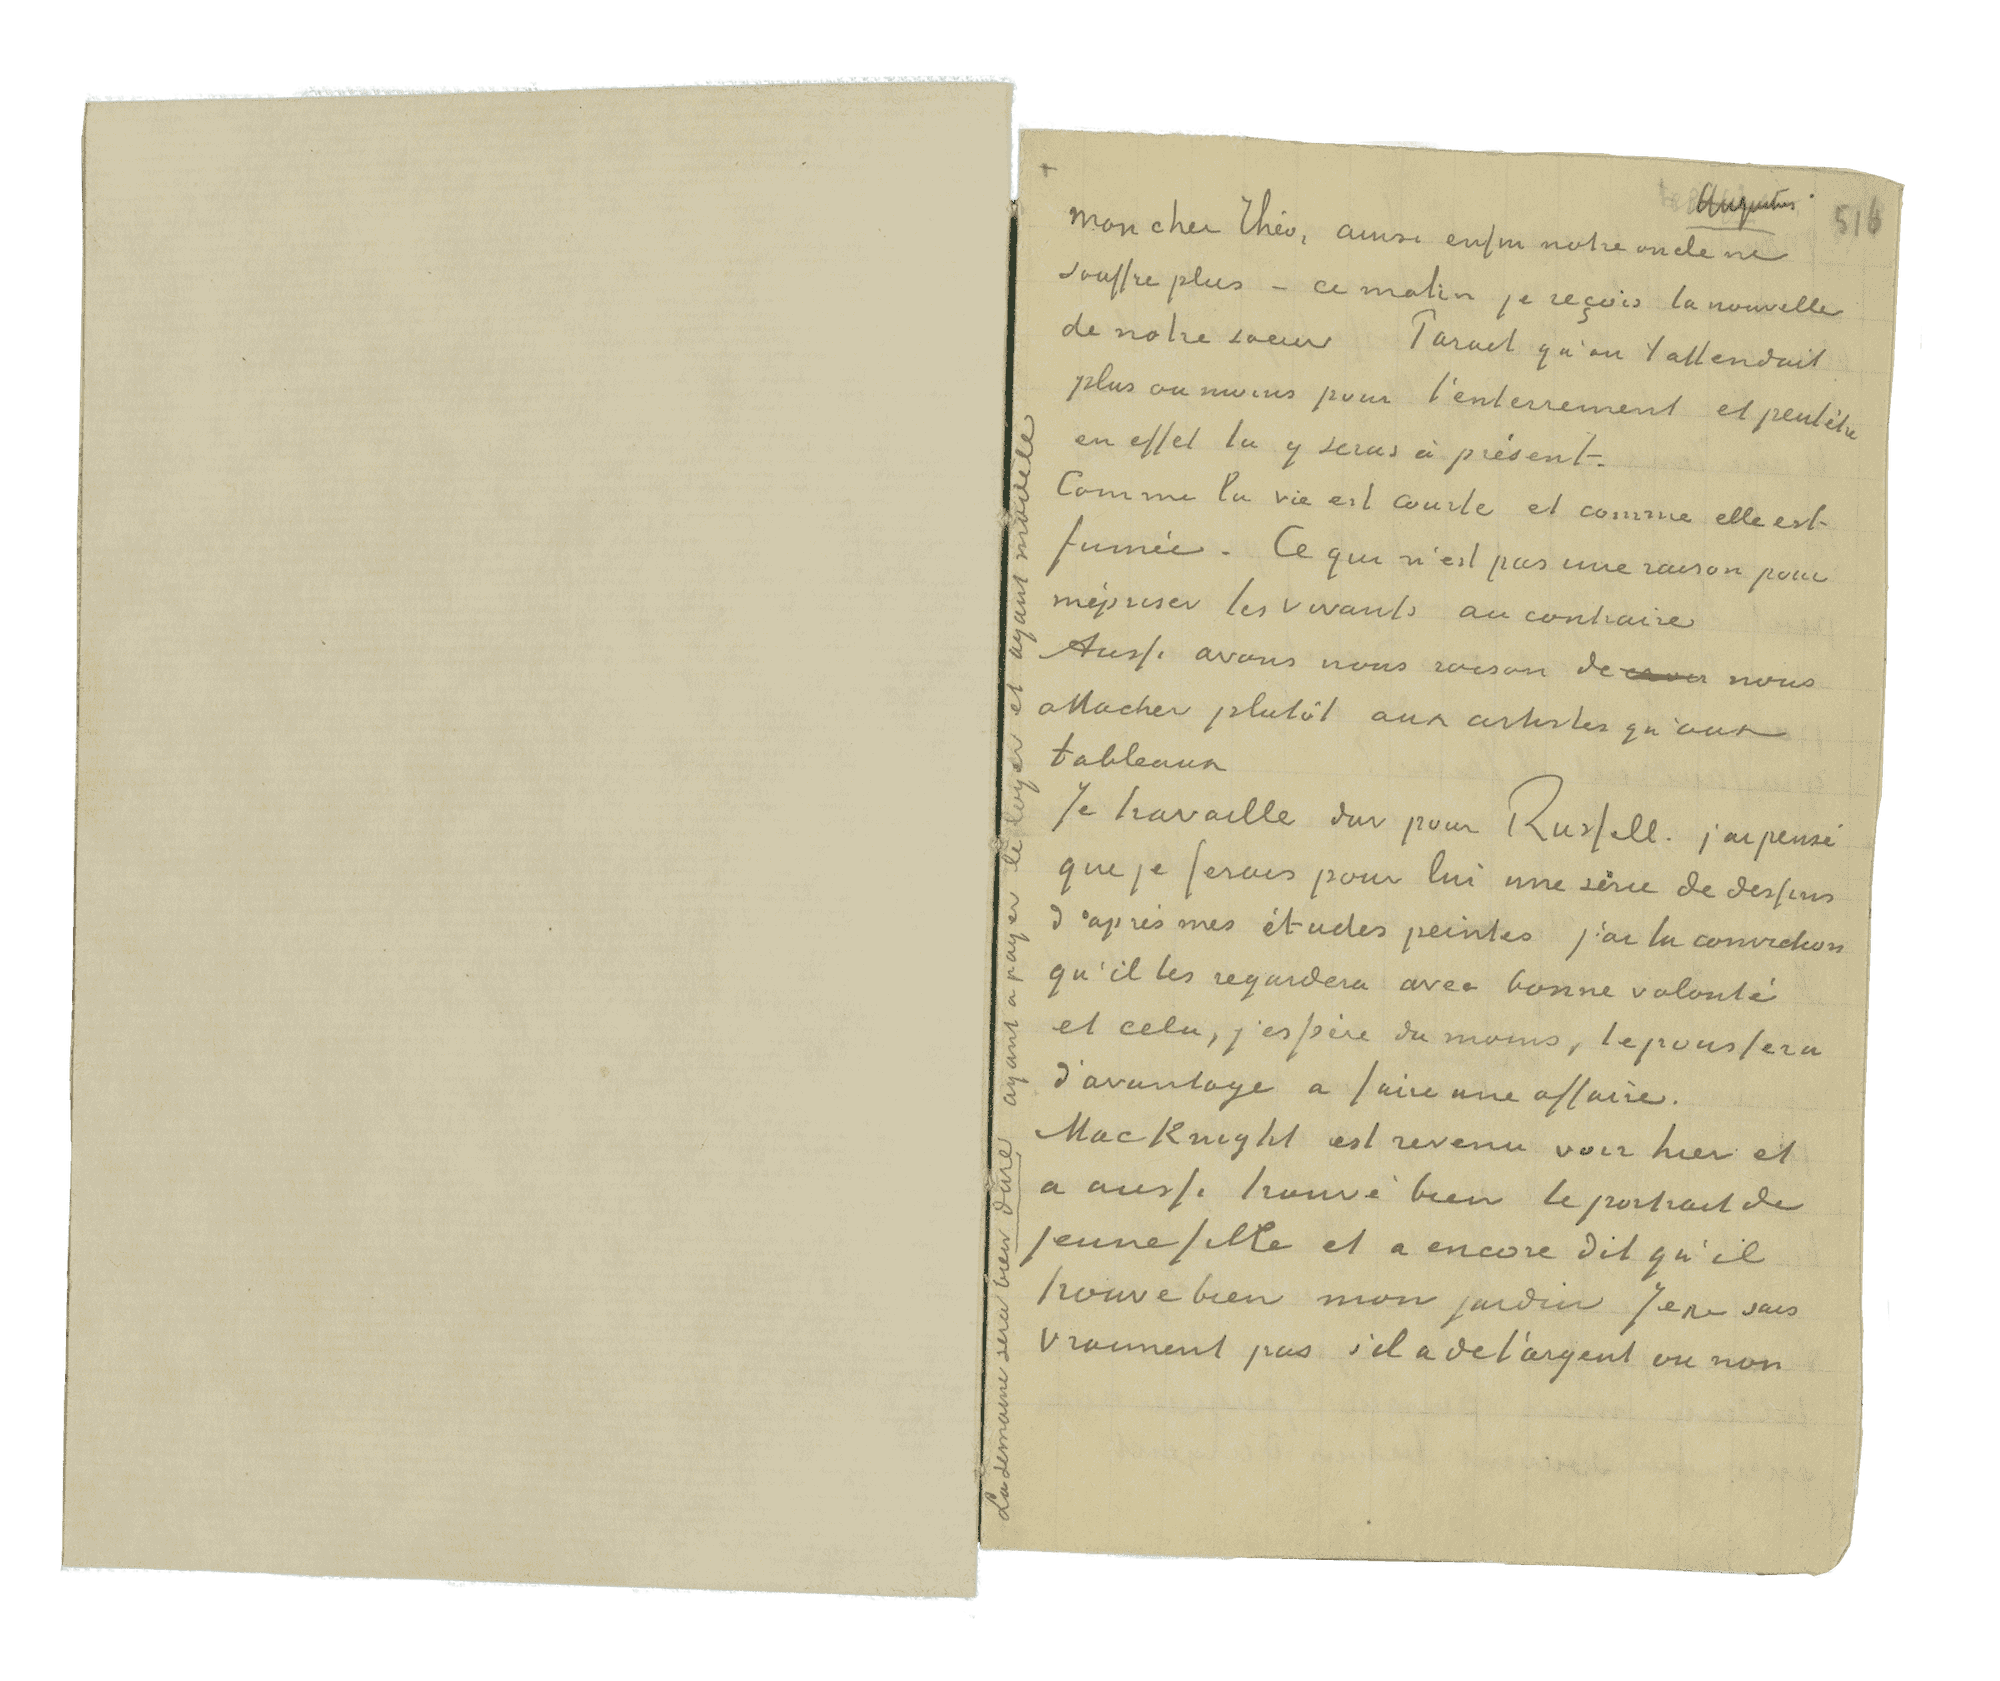 Augustus
516
mon cher Théo, ainsi enfin notre oncle ne
souffre plus – ce matin je reçois la nouvelle
de notre soeur Parait qu'on t'attendait
plus ou moins pour l'enterrement et peutêtre
en effet tu y seras à présent.
Comme la vie est courte et comme elle est
fumée. Ce qui n'est pas une raison pour
mépriser les vivants au contraire
Aussi avons nous raison de nous
attacher plutôt aux artistes qu'aux
tableaux
Je travaille dur pour Russell. j'ai pensé
que je ferais pour lui une série de dessins
d'après mes études peintes j'ai la conviction
qu'il les regardera avec bonne volonté
et cela, j'espère du moins, le poussera
d'avantage a faire une affaire.
MacKnight est revenu voir hier et
a aussi trouvé bien le portrait de
jeune fille et a encore dit qu'il
trouve bien mon jardin Je ne sais
vraiment pas s'il a de l'argent ou non
La semaine sera bien dure ayant a payer le loyer et ayant modèle